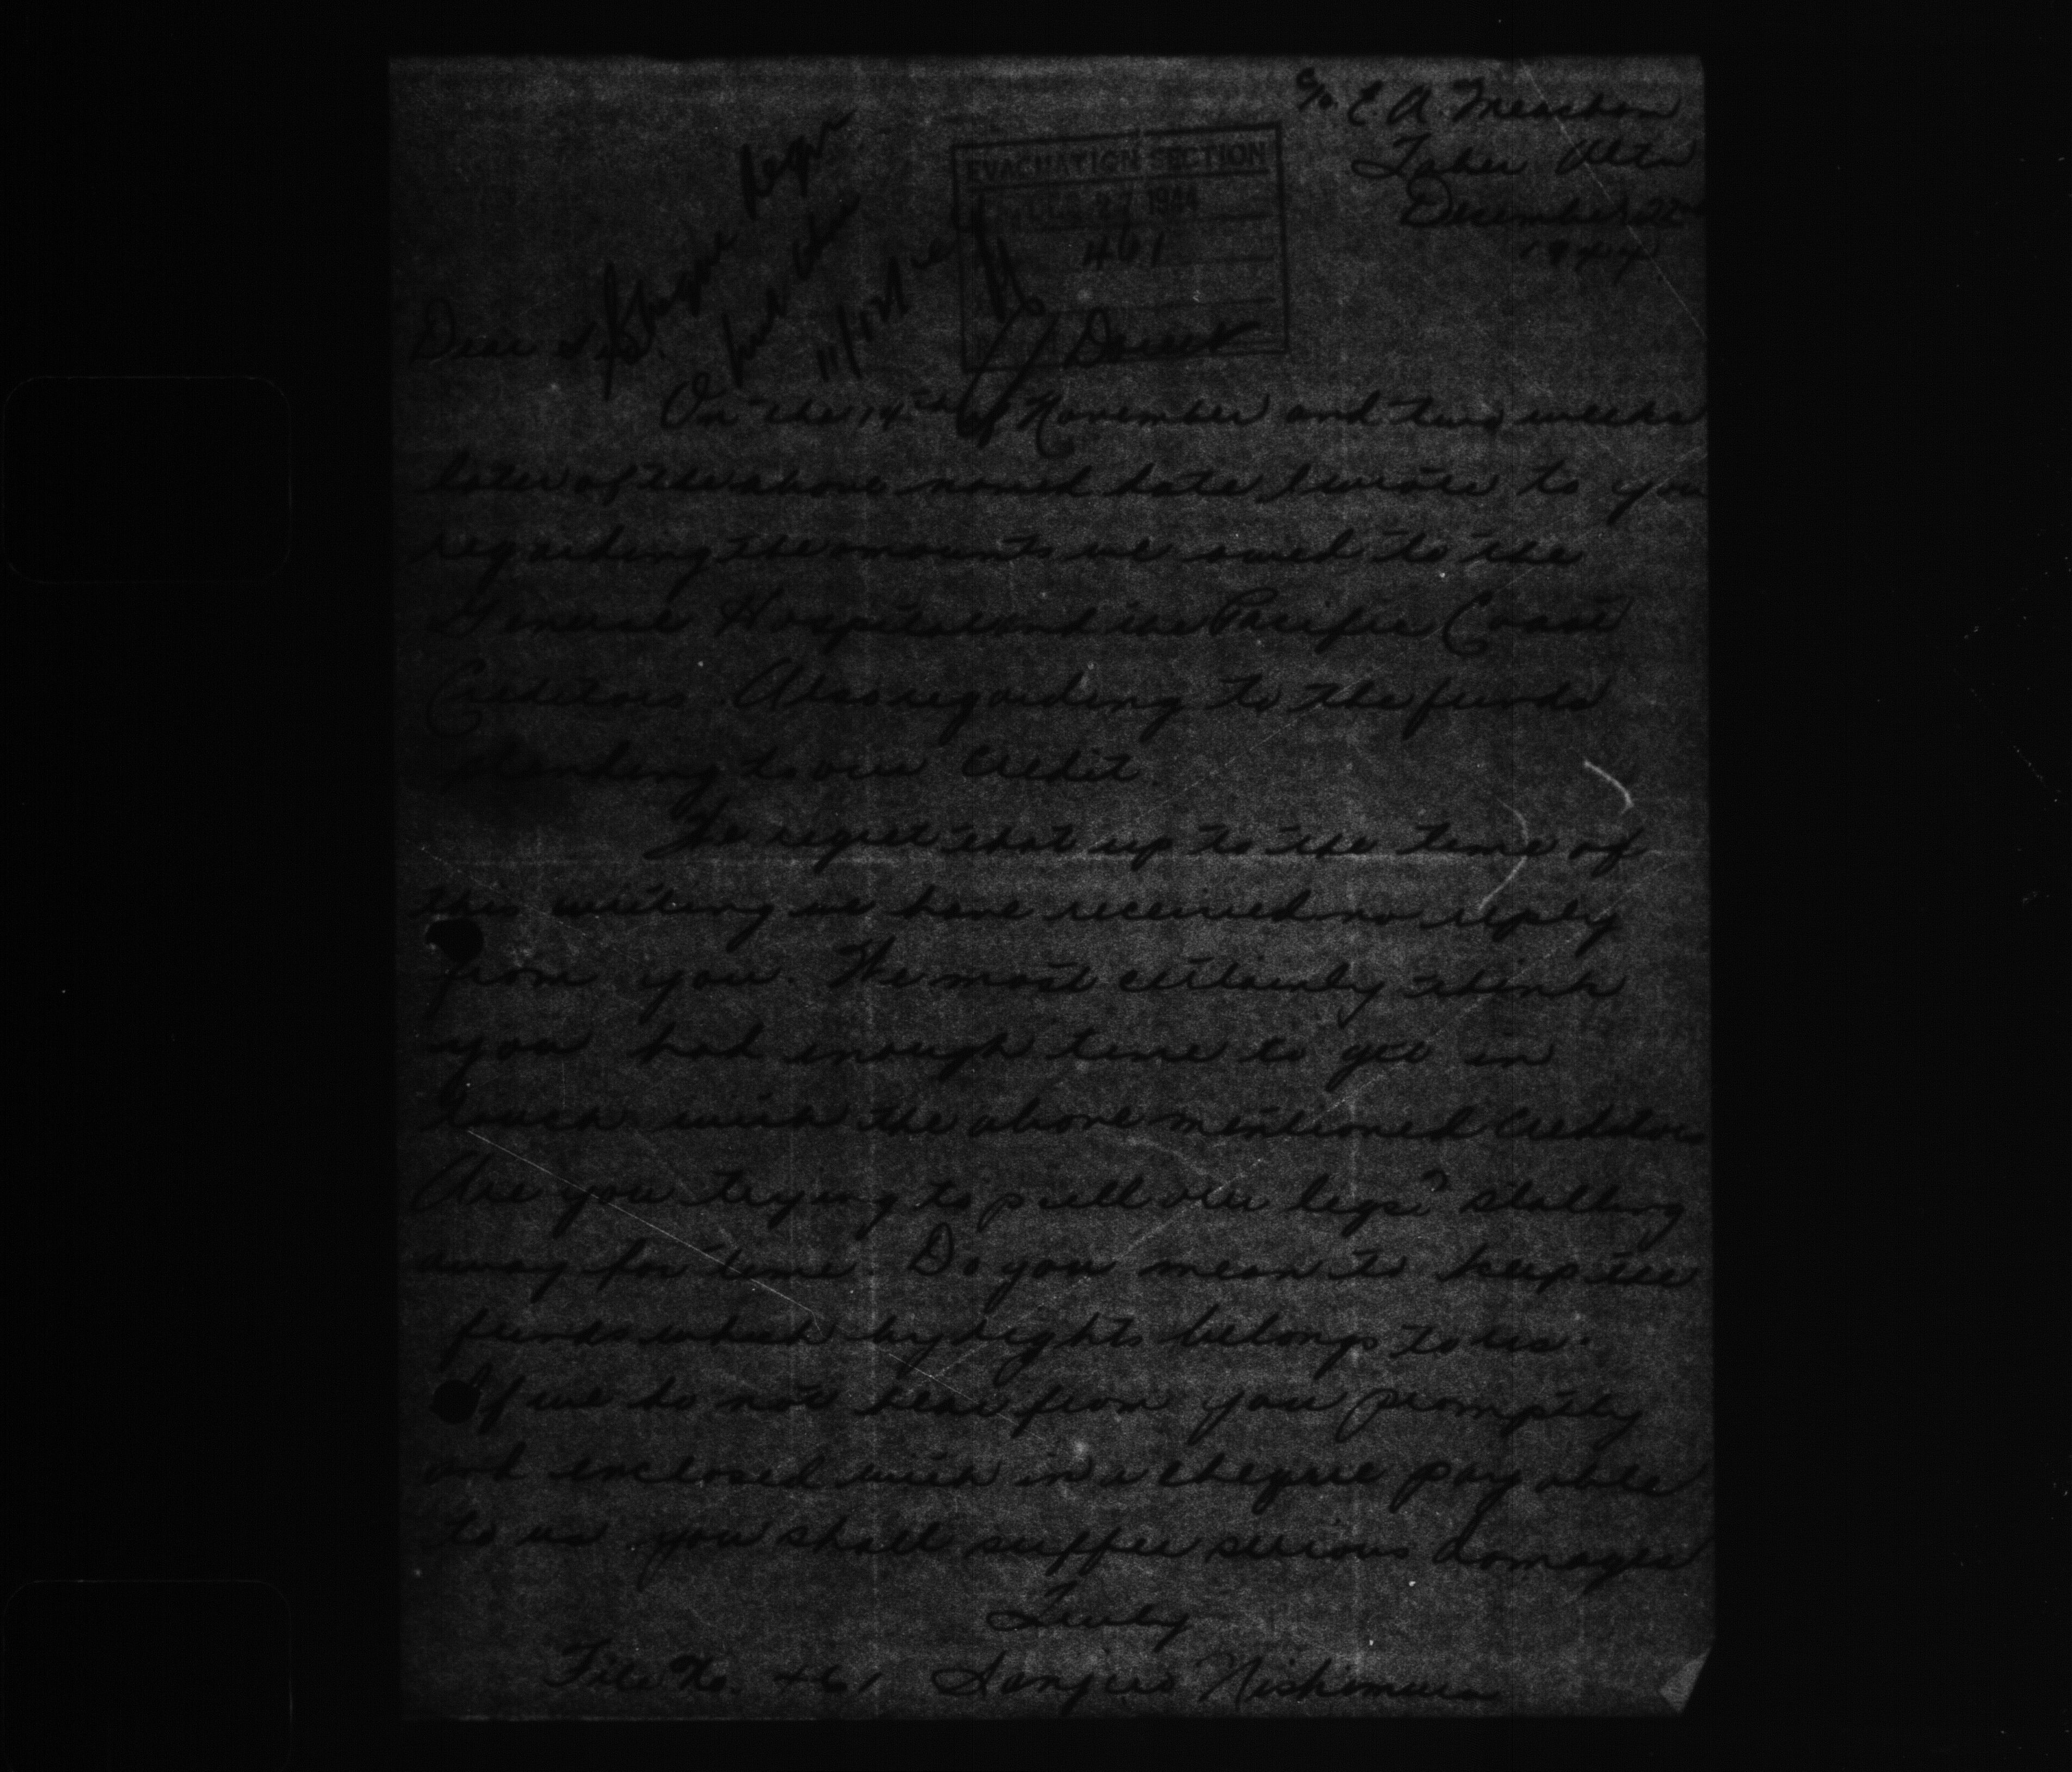 c/o E. A. Meachon
Taber Alta
December 22
1944
EVACUATION SECTION
DEC 27 1944
461
J. Doust
Dear Sir.
On the 14th of November and two weeks
later of the above named date I wrote to you
regarding the amounts we owed to the
General Hospital and the Pacific Coast
Creditors. Also regarding to the funds
standing to our credit.
We regret that up to the time of
this writing we have received no reply
from you. We most certainly think
you had enough time to get in
touch with the above mentioned creditors
Are you trying to pull our legs? stalling
away for time. Do you mean to keep the
funds which by rights belongs to us.
If we do not hear from you promptly
and enclosed with in a cheque pay able
to us you shall suffer serious damages
Truly
File No. 461 Nishimura